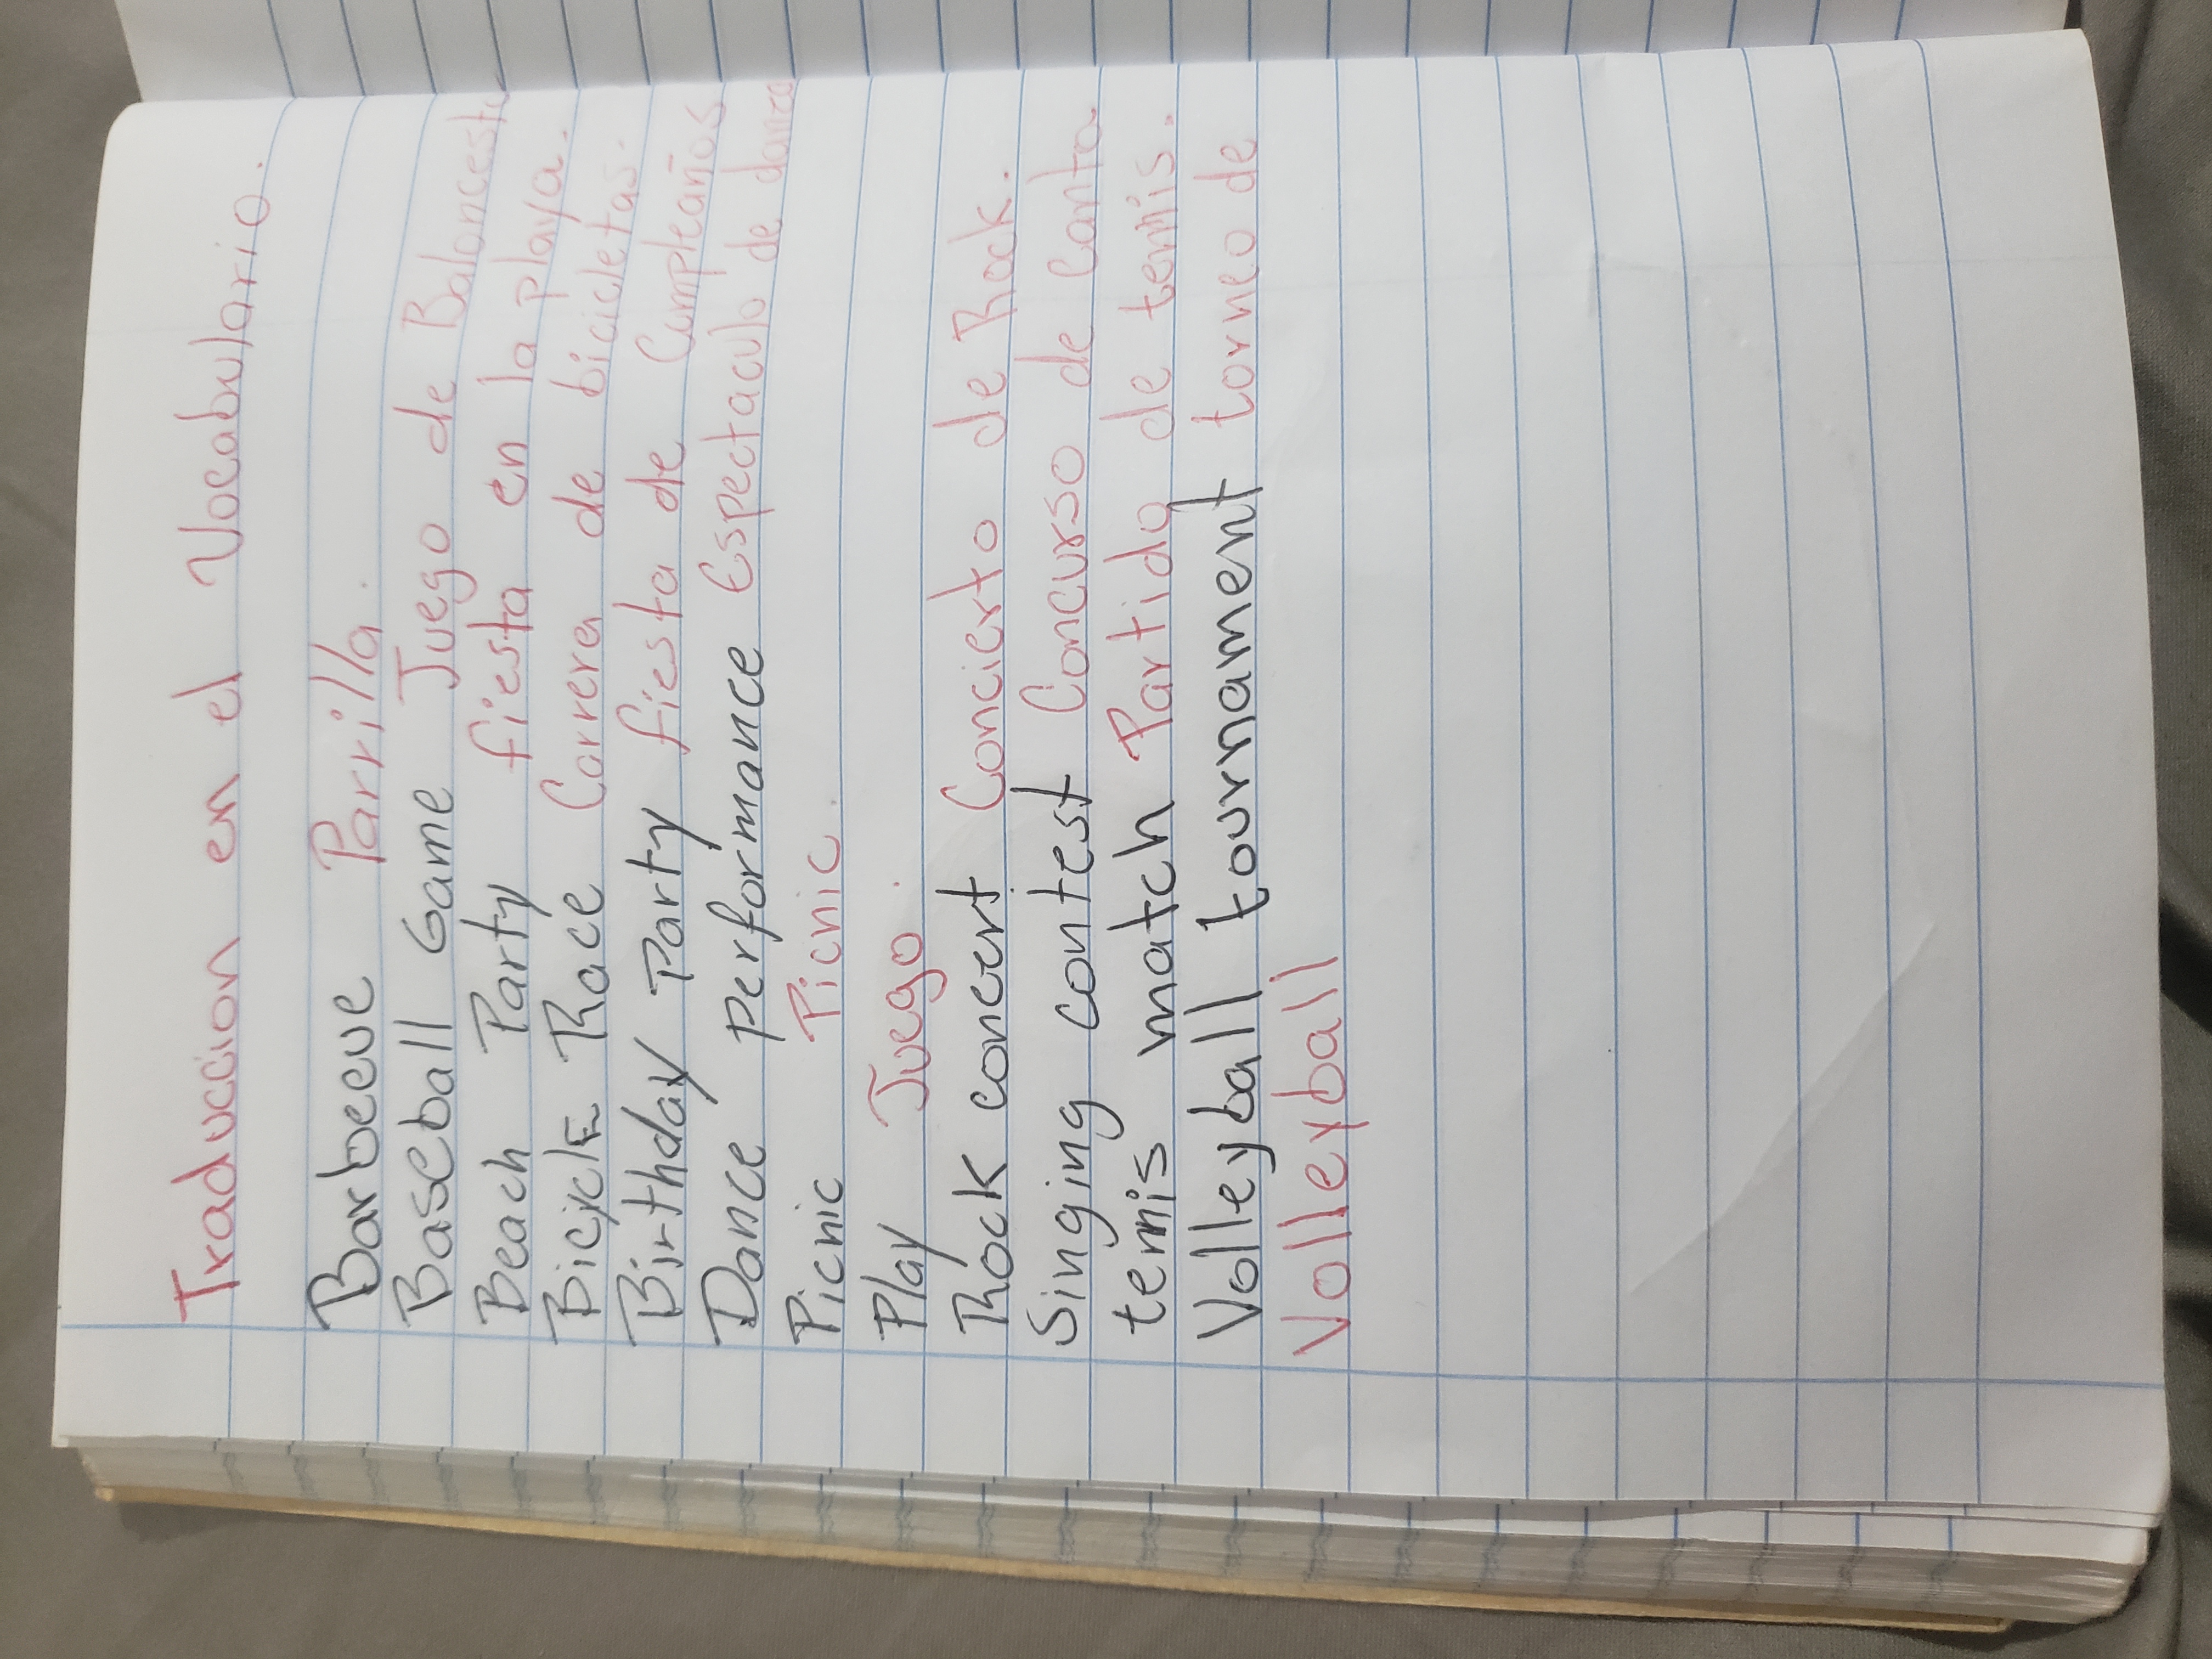 Traduccion en el Vocabulario.
Barbeeue Parrilla.
Baseball Game Juego de Baloncesto
Beach Party fiesta en la playa.
Bicycle Race Carrera de bicicletas.
Birthday Party fiesta de Cumpleaños
Dance performance Espectaculo de danza
Picnic Picnic.
Play Juego.
Rock concert Concierto de Rock.
Singing contest Concurso de Canto.
tenis match Partido de tenis.
Volleyball tournament torneo de
Volleyball